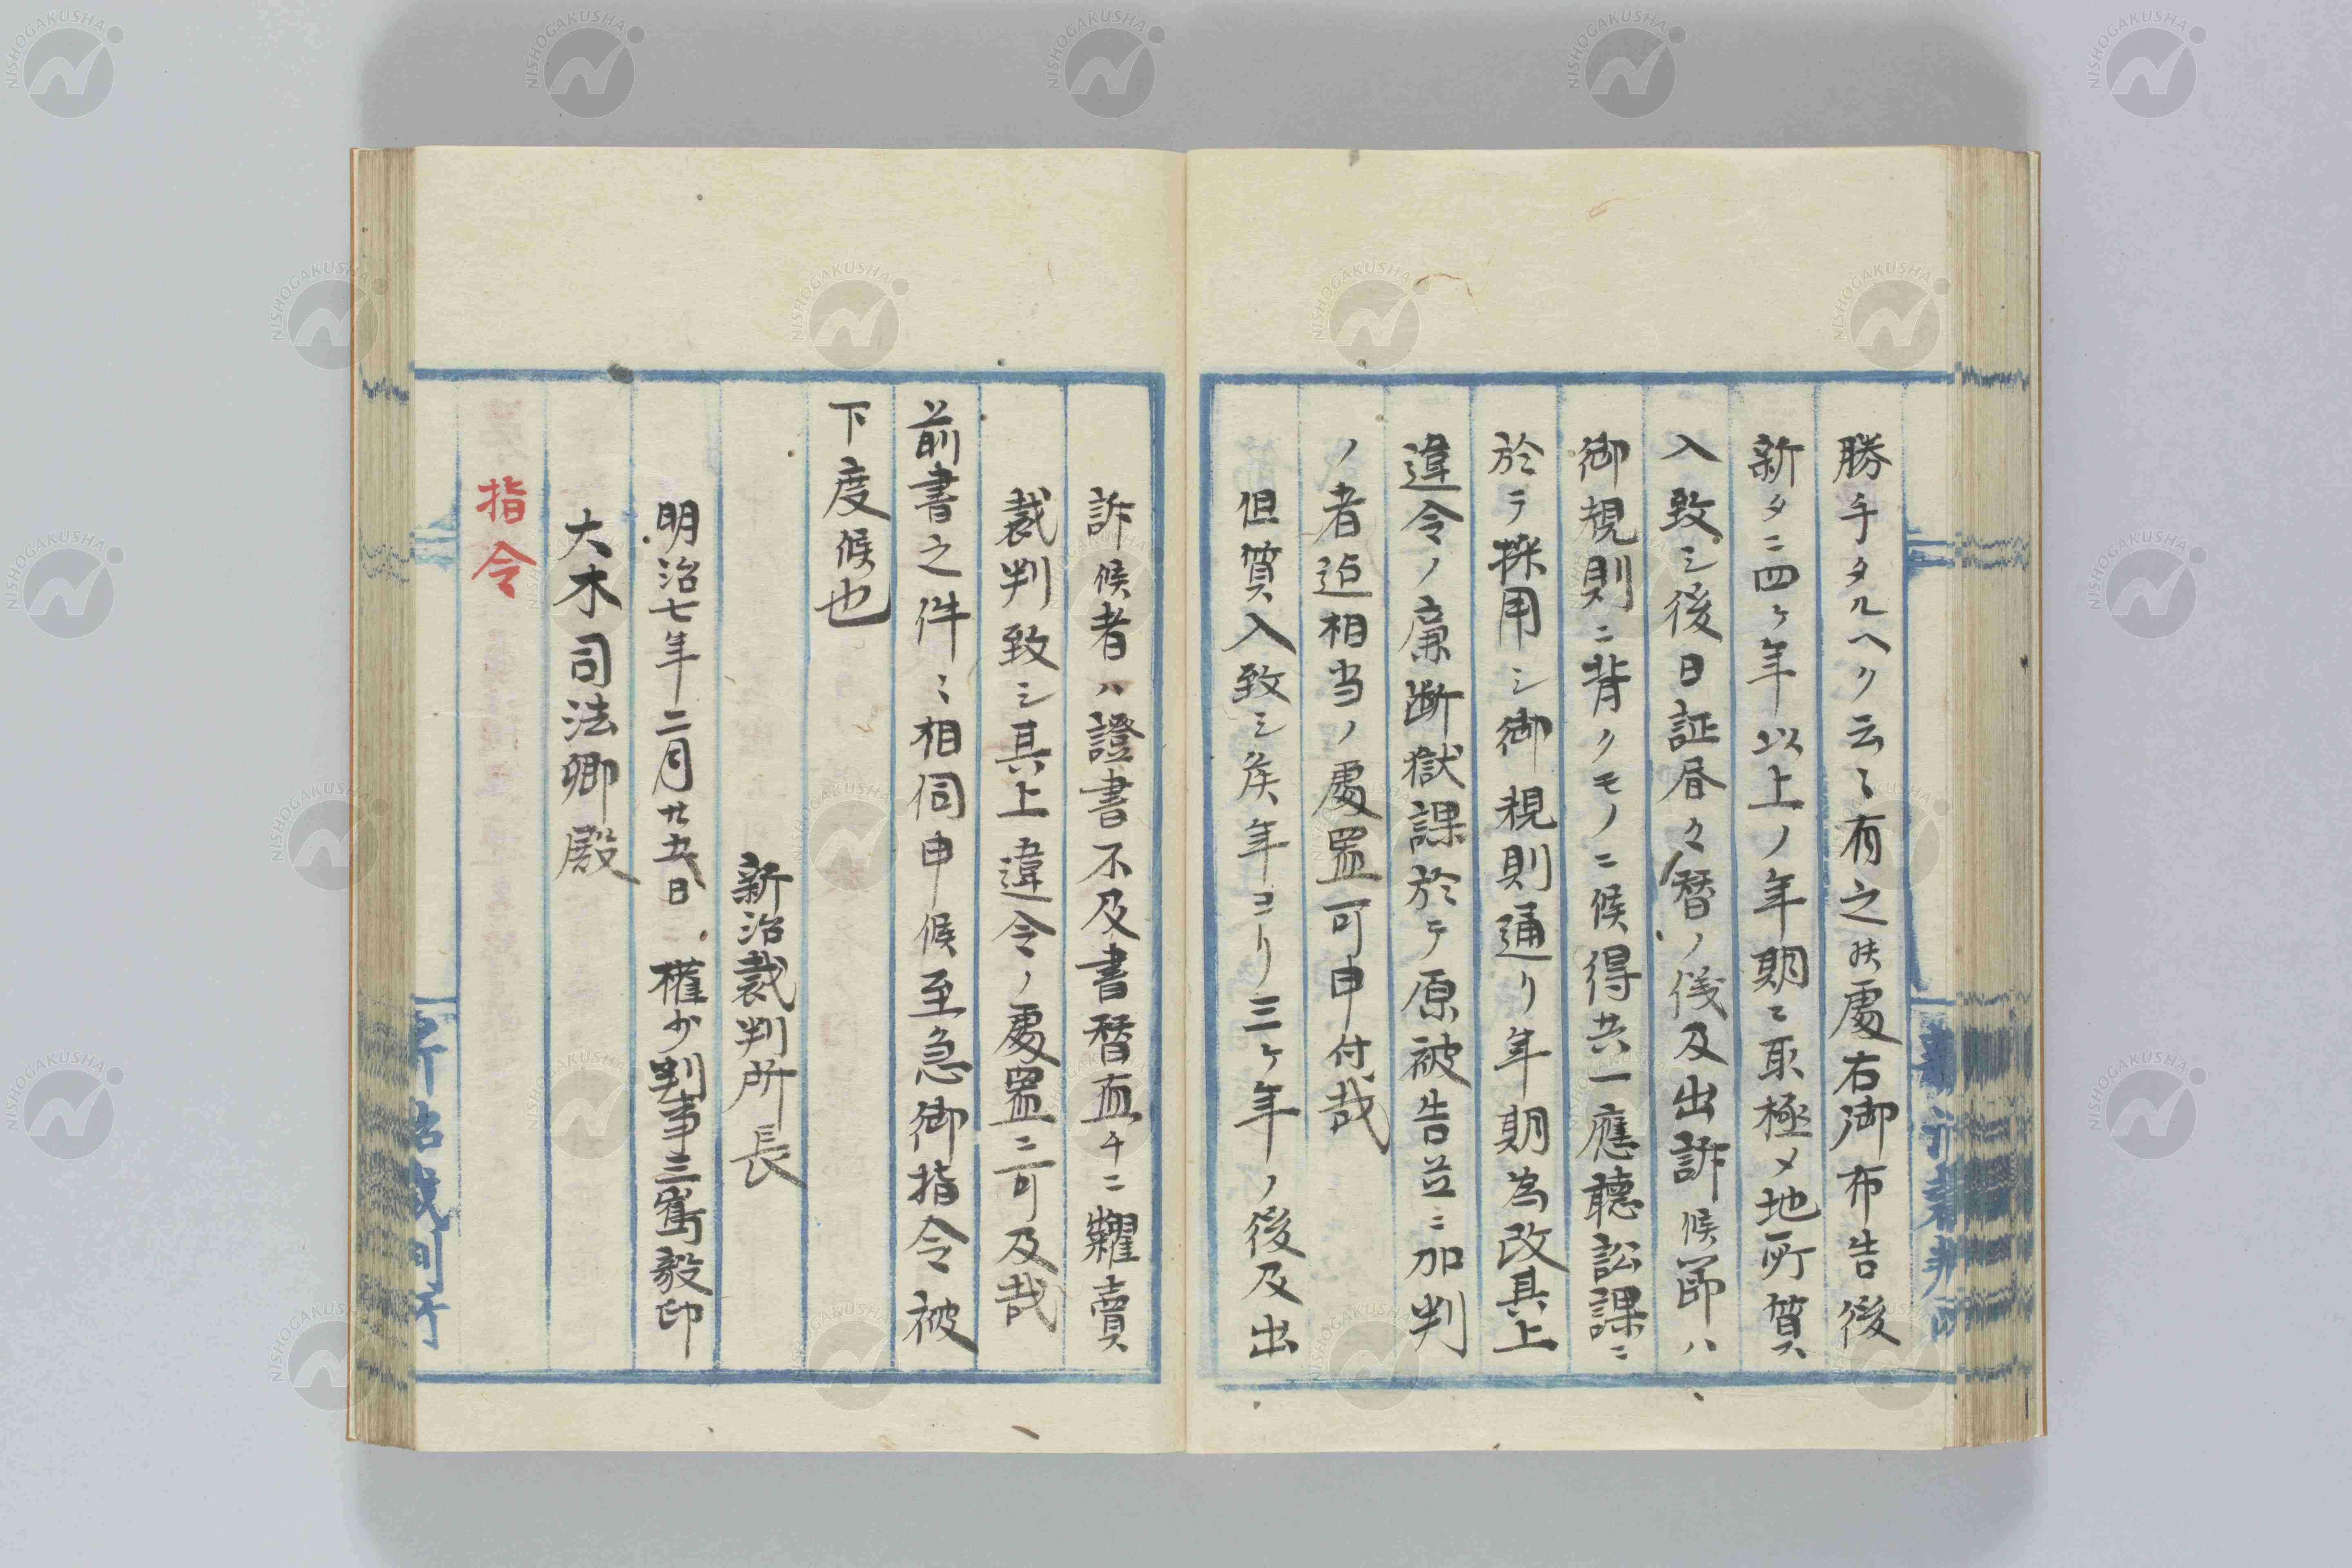 勝手タルヘク云〻有之候處右御布告後
新タニ四ケ年以上ノ年期ニ取極メ地所質
入致シ後日証書々替ノ儀及出訴候節ハ
御規則ニ背クモノニ候得共一應聴訟課ニ
於テ採用シ御規則通リ年期為改其上
違令ノ廉断獄課於テ原被告並ニ加判
ノ者迠相当ノ處置可申付哉
但質入致シ候年ヨリ三ケ年ノ後及出
訴候者ハ證書不及書替直チニ糶賣
裁判致シ其上違令ノ處置ニ可及哉
前書之件〻相伺申候至急御指令被
下度候也
新治裁判所長
明治七年二月廿五日 權少判事三嶌毅印
大木司法卿殿
指令
NISHOGAKUSHA